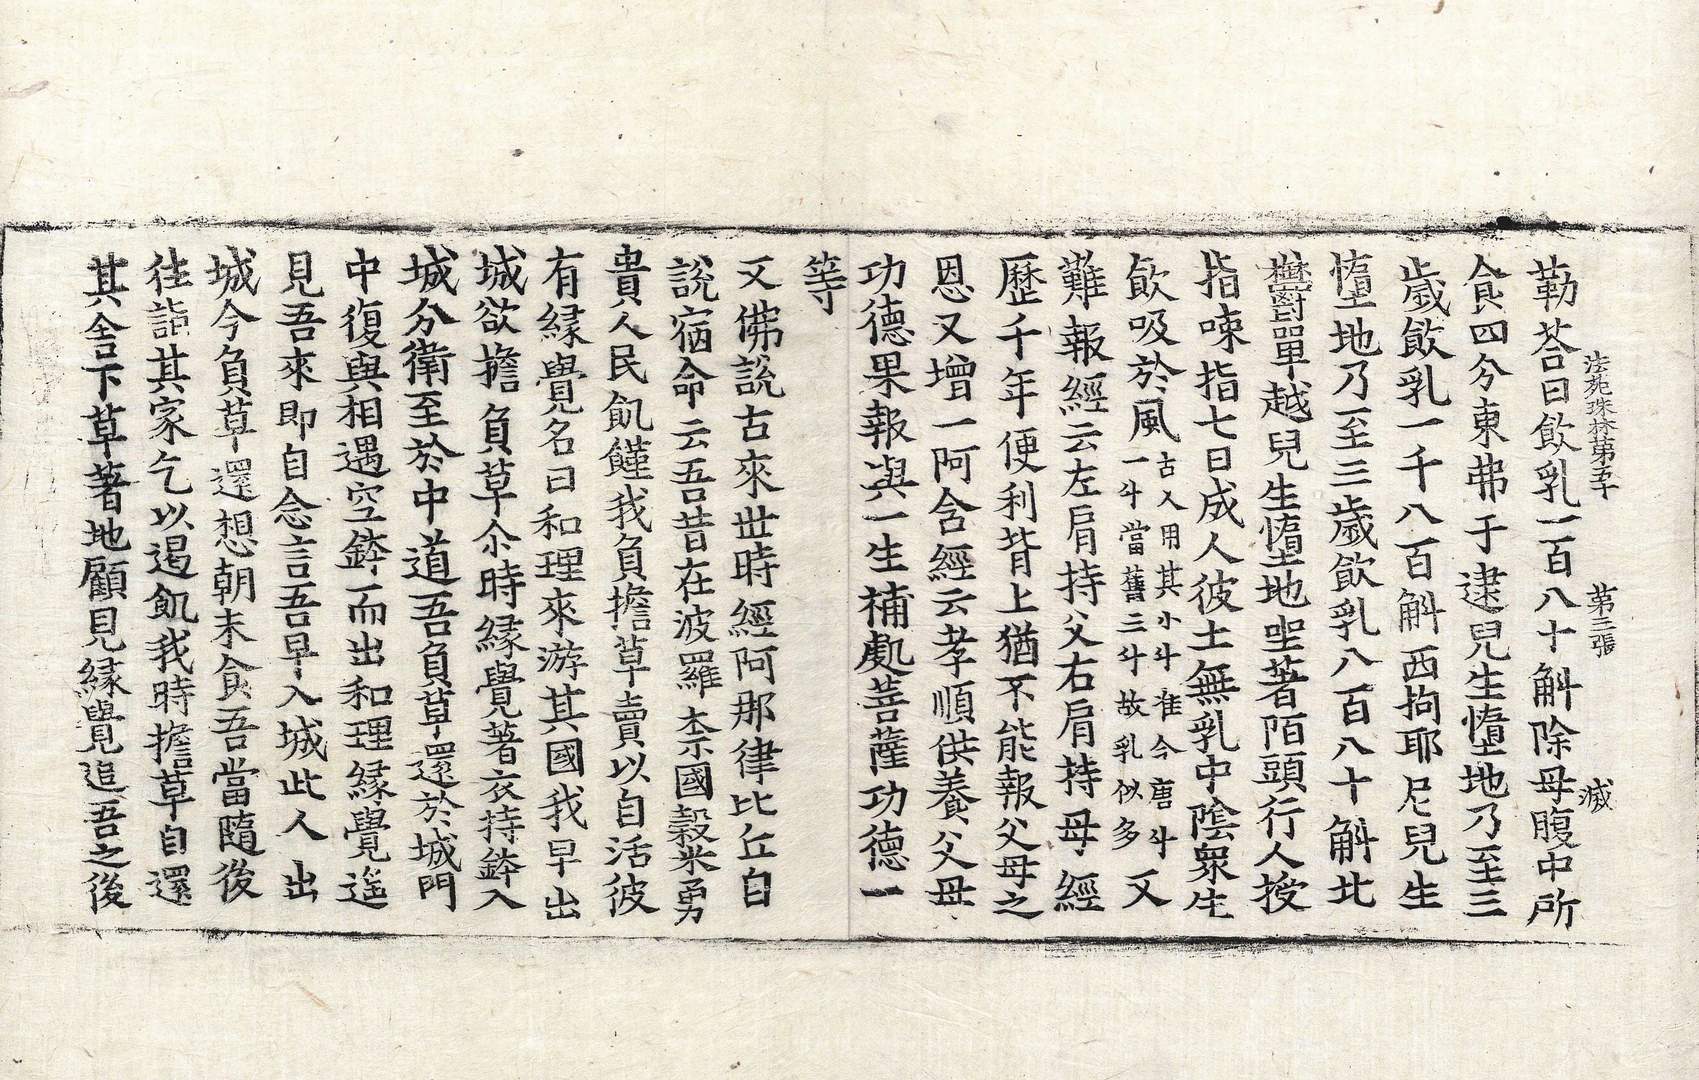 勒荅曰飲乳一百八十斛除母腹中所
法苑珠林第五十 第三張 滅
食四分東弗于逮兒生墮地乃至三
歲飲乳一千八百斛西拘耶尼兒生
墮地乃至三歲飲乳八百八十斛北
欝單越兒生墮地坐著陌頭行人授
指㖨指七日成人彼土無乳中陰衆生
飲吸於風古人用其小斗准今唐斗一斗當舊三斗故乳似多又
難報經云左肩持父右肩持母經
歷千年便利背上猶不能報父母之
恩又增一阿含經云孝順供養父母
功德果報與一生補處菩薩功德一
等
又佛說古來世時經阿那律比丘自
說宿命云吾昔在波羅㮈國穀米勇
貴人民飢饉我負擔草賣以自活彼
有緣覺名曰和理來游其國我早出
城欲擔負草尒時緣覺著衣持鉢入
城分衛至於中道吾負草還於城門
中復與相遇空鉢而出和理緣覺遙
見吾來即自念言吾早入城此人出
城今負草還想朝未食吾當隨後
往詣其家乞以遏飢我時擔草自還
其舍下草著地顧見緣覺追吾之後